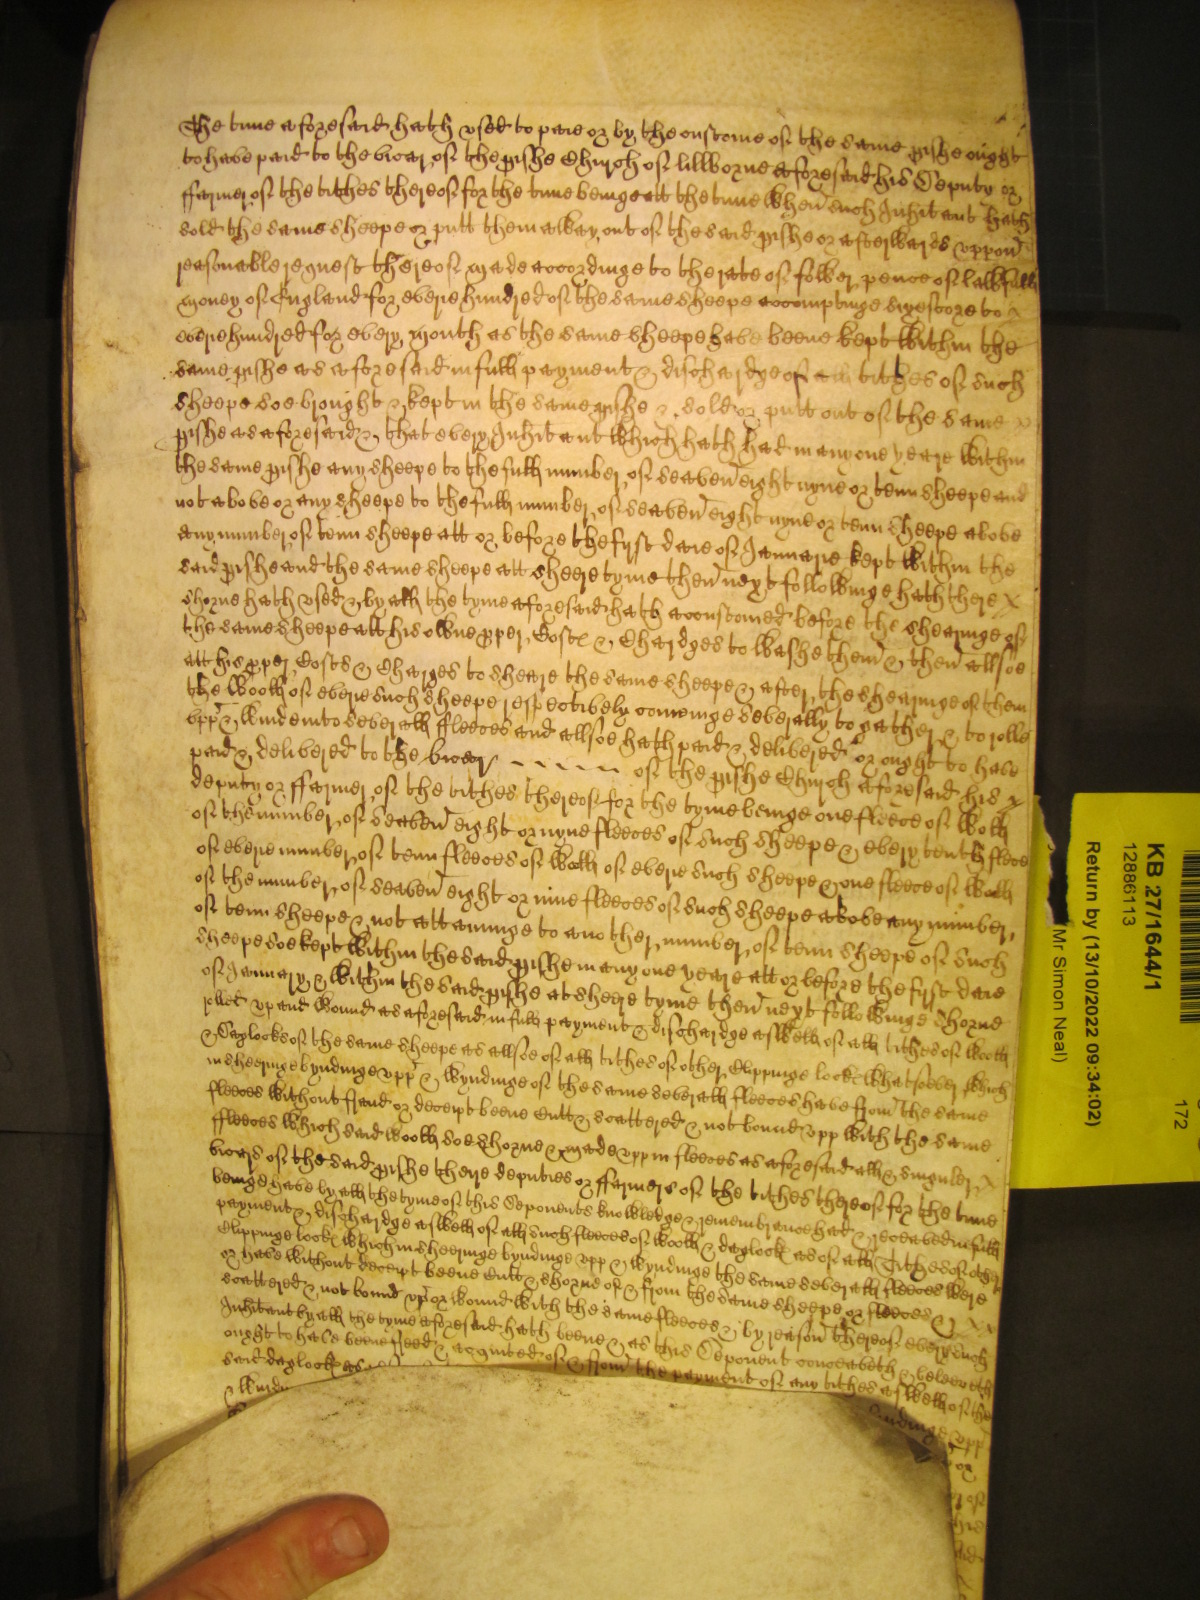 The time aforesaid hath used to paie or by the custome of the same pishe ought
to have paid to the vicar of the pishe Church of lillborne aforesaid his Deputy or
ffarmer of the tithes thereof for the time beinge att the time when such Inhitant hath
sold the same sheepe or putt them away out of the said pishe or afterwards uppon
reasonable request thereof made accordinge to the rate of fower pence of lawfull
money of England for everie hundred of the same sheepe accomptinge sixescore to
everie hundred for every month as the same sheepe have beene kept within the
same pishe as aforesaid in full payment & dischardge of tithes of such
sheepe soe brought & kept in the same pishe & sold or putt out of the same
pishe as aforesaid & that every Inhitant which hath had in any one yeare within
the same pishe any sheepe to the full number of seaven eight nyne or tenn sheepe and
not above or any sheepe to the full number of seaven eight nyne or tenn sheepe above
any number of tenn sheepe att or before the fyrst daie of Januarie kept within the
said pishe and the same sheepe att sheere tyme then next followinge hath there
shorne hath used & by all the tyme aforesaid hath accustomed before the shearinge of
the same sheepe att his owne pper Coste & Chardges to washe them & then allsoe
att his pper Costs & Charges to sheare the same sheepe & after the shearinge of them
the wooll of everie such sheepe respectively cominge severally to gather & to rolle
upp & winde into severall fleeces and allsoe hath paid & delivered or ought to have
paid & delivered to the vicar - - - - - of the pishe Church aforesaid his
deputy or ffarmer of the tithes thereof for the tyme beinge one fleece of wooll
of the number of seaven eight or nyne fleeces of such sheepe & every tenth fleece
of everie number of tenn fleeces of wooll of everie such sheepe & one fleece of wooll
of the number of seaven eight or nine fleeces of such sheepe above any number
of tenn sheepe & not attaininge to another number of tenn sheepe of such
sheepe soe kept within the said pishe in any one yeare att or before the fyrst daie
of January & within the said pishe at sheere tyme then next followinge shorne
rolled up and wound as aforesaid in full payment & dischardge aswell of all tithes of wooll
& Daglocks of the same sheepe as allsoe of all tithes of other Clippinge lock whatsoever which
in sheeringe byndinge upp & wyndinge of the same severall fleeces have from the same
fleeces without fraud or deceipt beene cutt & scattered & not bound upp with the same
ffleeces which said wooll soe shorne & made upp in fleeces as aforesaid all & singuler
vicars of the said pishe there deputies or ffarmers of the tithes thereof for the time
beinge have by all the tyme of this Deponents knowledge & remembrance had & receaved in full
payment & dischardge aswell of all such fleeces of wooll & daglock as of all Tithes of other
Clippinge lock which in sheeringe byndinge upp & wyndinge the same severall fleeces were
or have without deceipt beene cutt & shorne of & from the same sheepe or fleeces &
scattered & not bound up or wound with the same fleeces & by reason thereof every such
Inhitant by all the tyme aforesaid hath beene & as this Deponent conceaveth & beleeveth
ought to have beene freed & acquited of & from the payment of any tithes aswell of the
said daglock as
& wynd
KB 27/1644/1
12886113
Return by (13/10/2022 09:34:02)
Mr Simon Neal)
172